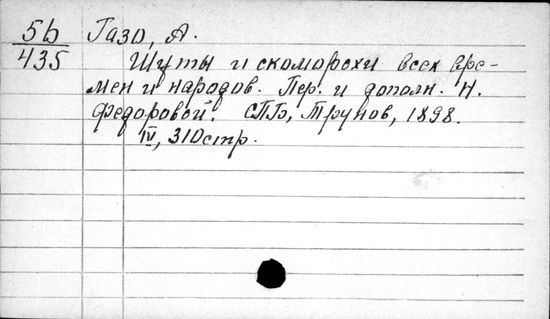 5b Газо, А.
435 Шуты и скоморохи всех вре-
мен и народов. Пер. и дополн. Н.
Федоровой. СПБ, Трунов, 1898.
IV, 310стр.